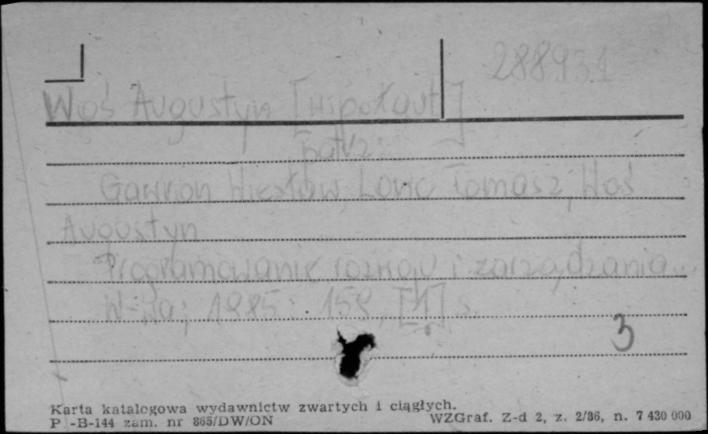 288931
Woś Augustyn [współaut.]
patrz:
Gawron Wiesław, Lonc Tomasz, Woś
Augustyn
Programowanie rozwoju i zarządzania...
W-wa; 1985. 159, [1] s.
3
Karta katalogowa wydawnictw zwartych i ciągłych.
P-B-144 zam. nr 865/DW/ON
WZGraf. Z-d 2, z. 2/86, n. 7 430 000